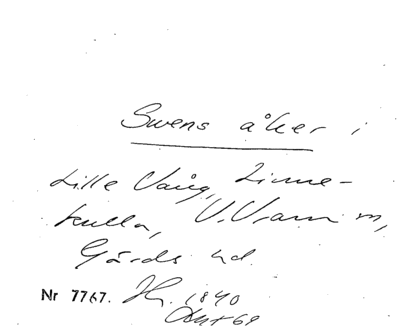 Swens åker i
Lille Vång, Linne-
kulla, V. Vram sn,
Gärds hd.
Nr 7767. 1840